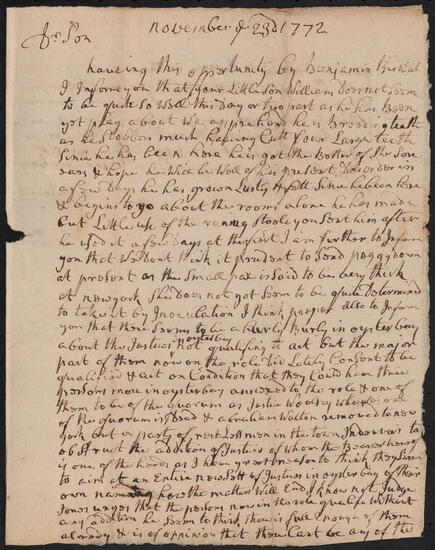 November ye 23d 1772
Dr Son
haveing this oppertunity by Benjamin Birdsal
I Informe you that your Little Son William Dos not Seem
to be quite So Well this Day or two past as he has Been
yet play about We apprehend he is Breeding teeth
as he Slobbers much haveing Cutt four Large teeth
Since he has been here he is got the Better of the Sore
ears & hope he Will be Well of his present Disorder in
a few Days he has grown Lusty & fatt Since he been here
& begins to go about the room alone he has made
but Little use of the runing Stoole you Sent him after
he used it a few Days at the first I am further to Inform
you that We Dont think it prudent to Send peggy down
at present as the Small pox is Said to be very thick
at newyork She Dos not yet Seem to be quite Determined
to take it by Inoculation I think proper also to Inform
you that there Seems to be a hurly burly in oysterbay
about the Justices Not qualifying to act but the major
oysterbay
part of them now on the role did Lately Consent to be
qualified & act on Condition that they Could have three
persons more in oysterbay annexed to the role & one of
them to be of the quorum as Justice Woolsey who was one
of the quorum is Dead & abraham Walton removed to new
york but a party of Gentlemen in the town Indeavors to
obstruct the addition of Justices of whom the Bearer hereof
is one of the heros as I have great reason to think they Seem
to aim at an Entire new Sett of Justices in oysterbay of their
own nameing how the matter Will End I know not Judge
Jones urges that the persons now in the role qualifie Without
any addition he Seems to think there is full enough of them
already & is of opinion that there Cant be any of the